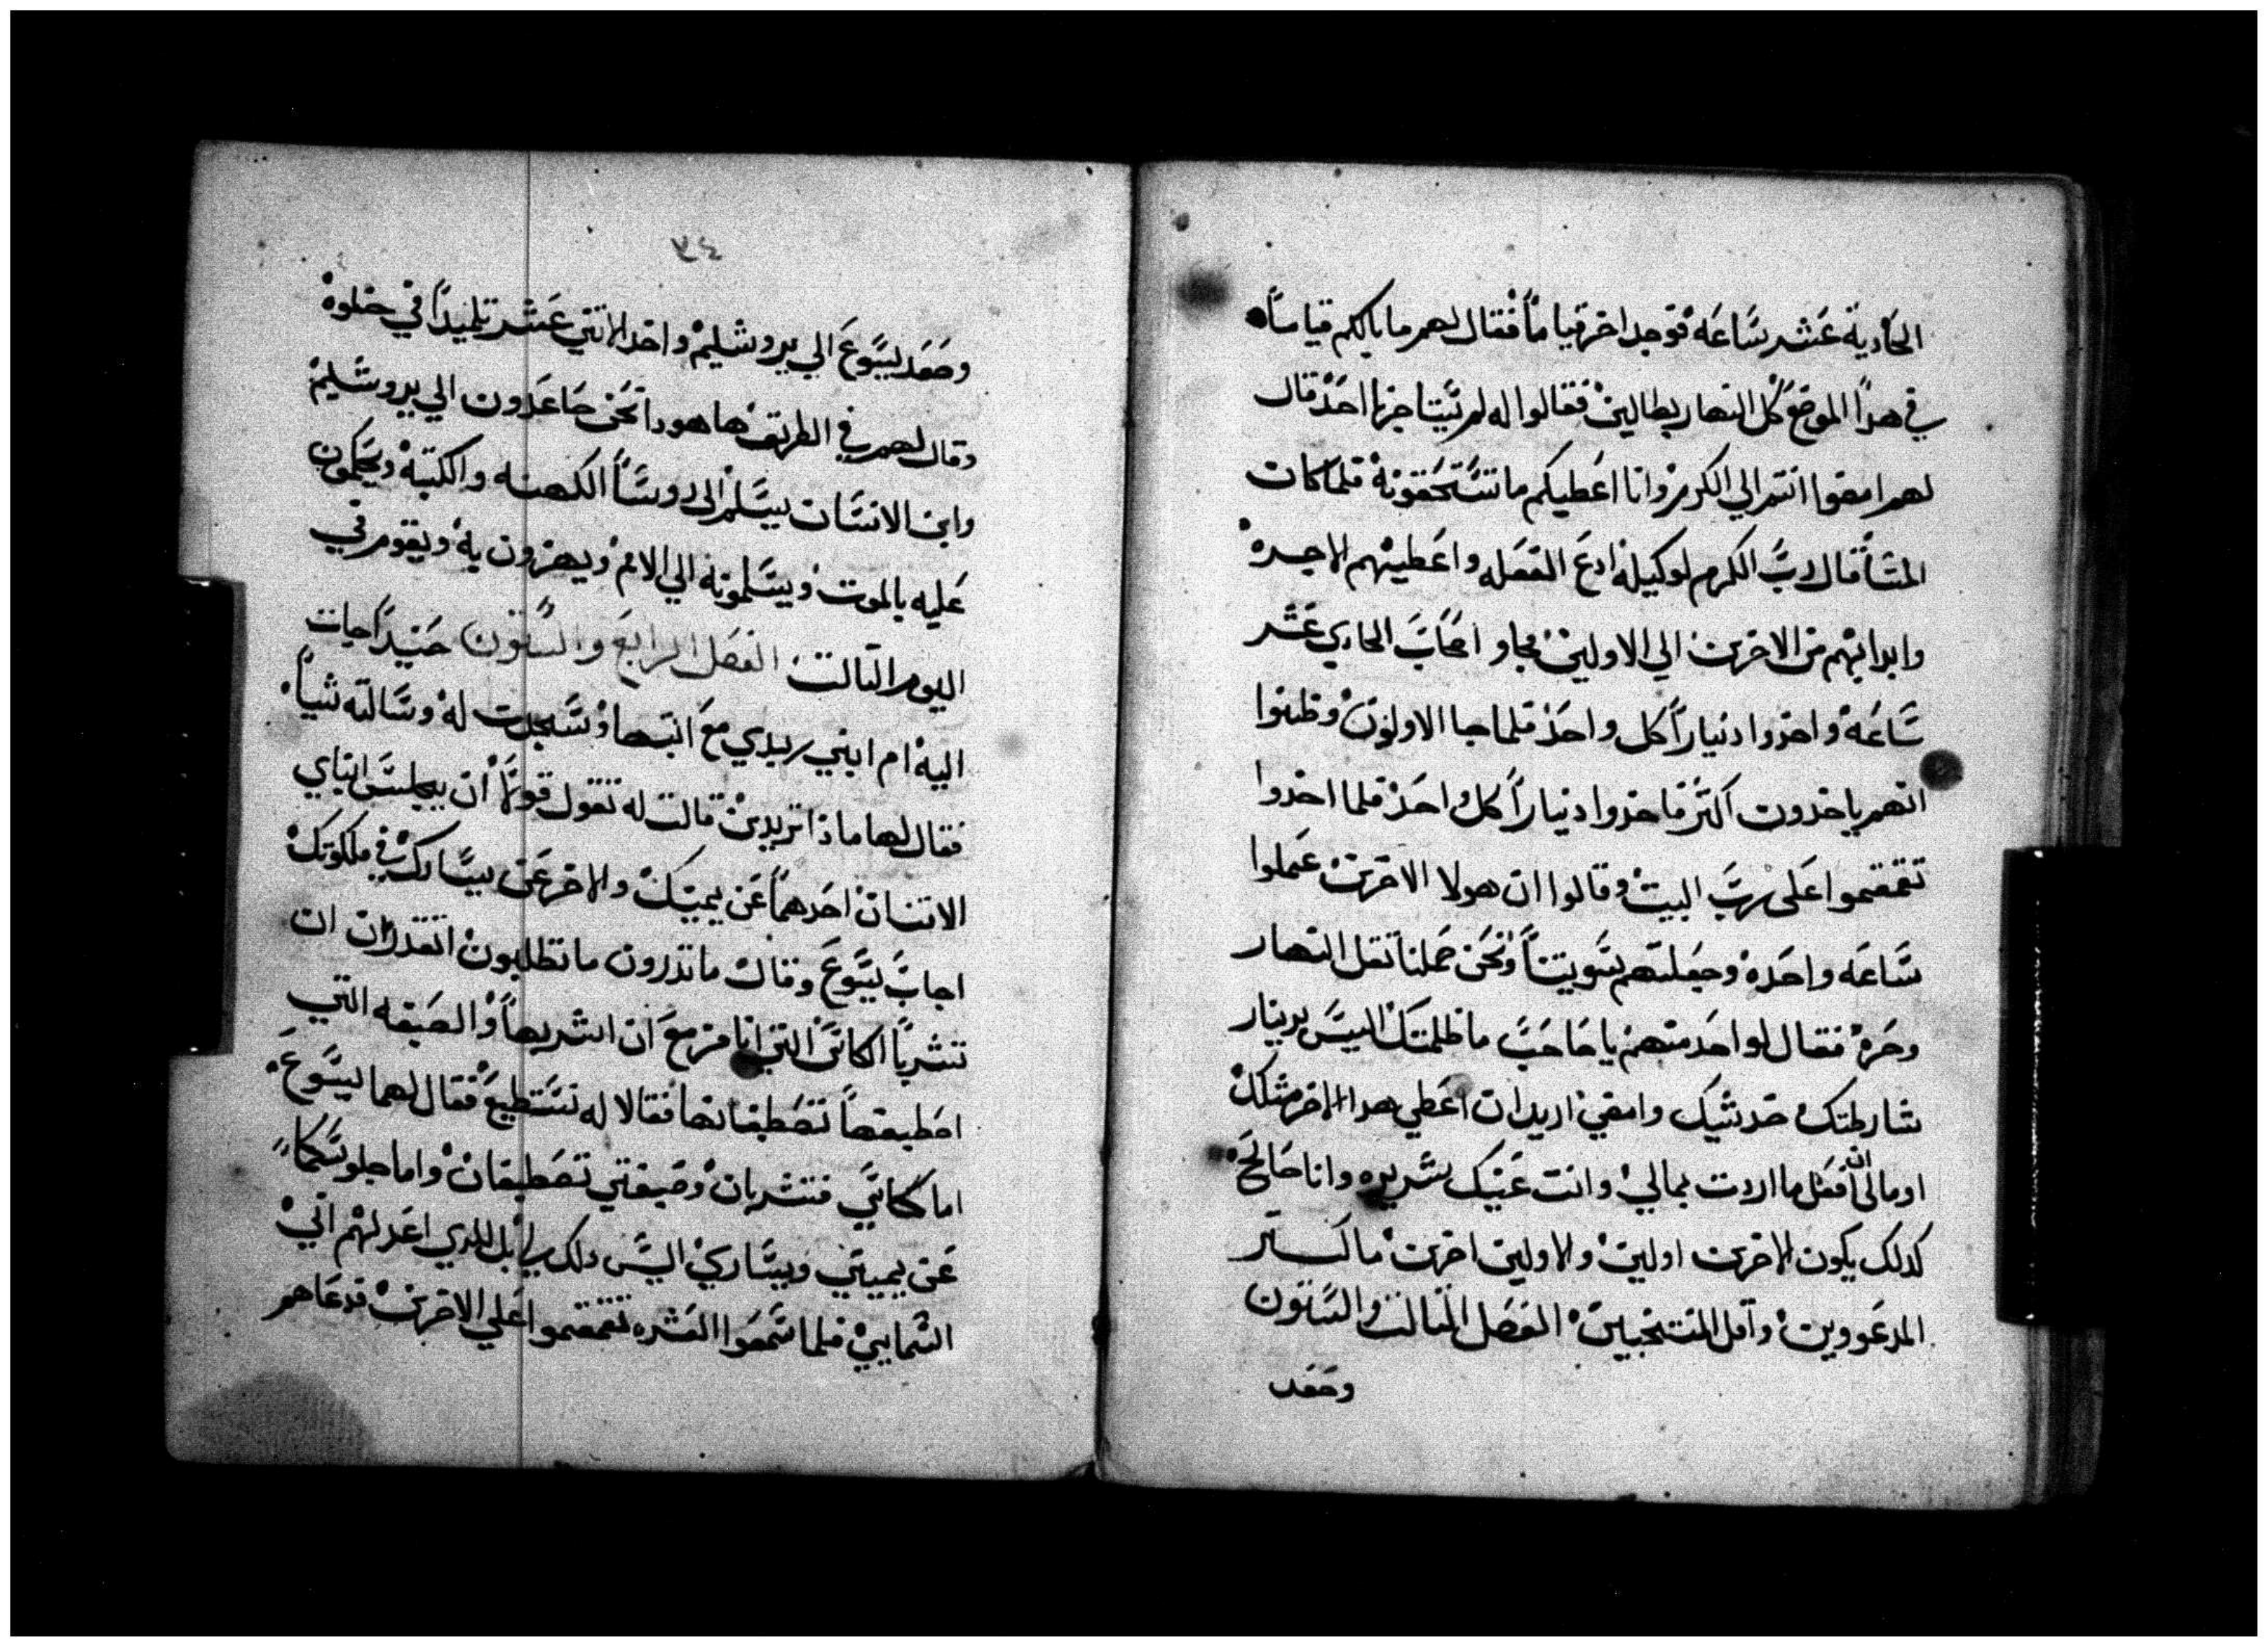 الحادية عشر ساعه فوجد اخر قياماً فقال لهم ما بالكم قياماً
في هدا الموضع كل النهار بطالين فقالوا له لم يستاجرنا احد قال
لهم امضوا انتم الي الكرم وانا اعطيكم ما تستحقونه فلما كان
المسا قال رب الكرم لوكيله ادع الفعله واعطيهم الاجره
وابدا بهم من الاخرين الي الاولين فجاو اصحاب الحادي عشر
ساعه واخدوا ديناراً كل واحد فلما جا الاولون وظنوا
انهم ياخدون اكتر فاخدوا ديناراً كل واحد فلما اخدوا
تقمقموا على رب البيت وقالوا ان هولا الاخرين عملوا
ساعه واحده وجعلتهم اسويتنا ونحن حملنا تقل النهار
وحره فقال لواحد منهم يا صاحب ما ظلمتك اليس بدينار
شارطتك خد شيك وامضي اريد ان اعطي هدا الاخر متلك
او مالي ان افعل ما اردت بمالي وانت عينك شريره وانا صالح
كدلك يكون الاخرين اولين والاولين اخرين ما اكتر
المدعووين واقل المنتخبين الفصل التالت والستون
وصعد
٧٤
وصعد يسوع الي يروشليم واخد الاتني عشر تلميداً في خلوه
وقال لهم في الطريق ها هودا نحن صاعدون الي يروشليم
وابن الانسان يسلم الى روسا الكهنه والكتبه ويحكمون
عليه بالموت ويسلمونه الي الامم ويهزون به ويقوم في
اليوم التالت الفصل الرابع والستون حنيداً جات
اليه ام ابني زبدي مع ابنيها وسجدت له وسالته شياً
فقال لها ماذا تريدين قالت له تقول قولاً ان يجلس ابناي
الاتنان احدهما عن يمينك والاخر عن يسارك في ملكوتك
اجاب يسوع وقال ما تدرون ما تطلبون اتقدران ان
تشربا الكاس التي انا مزمع ان اشربها والصبغه التي
اصطبغها تصطبغانها فقالا له نستطيع فقال لهما يسوع
اما كاسي فتشربان وصبغتي تصطبغان واما جلوسكما
عن يميني ويساري اليس دلك لي بل للدي اعد لهم ابي
السمايي فلما سمعوا العشره تقمقموا علي الاخرين فدعاهم